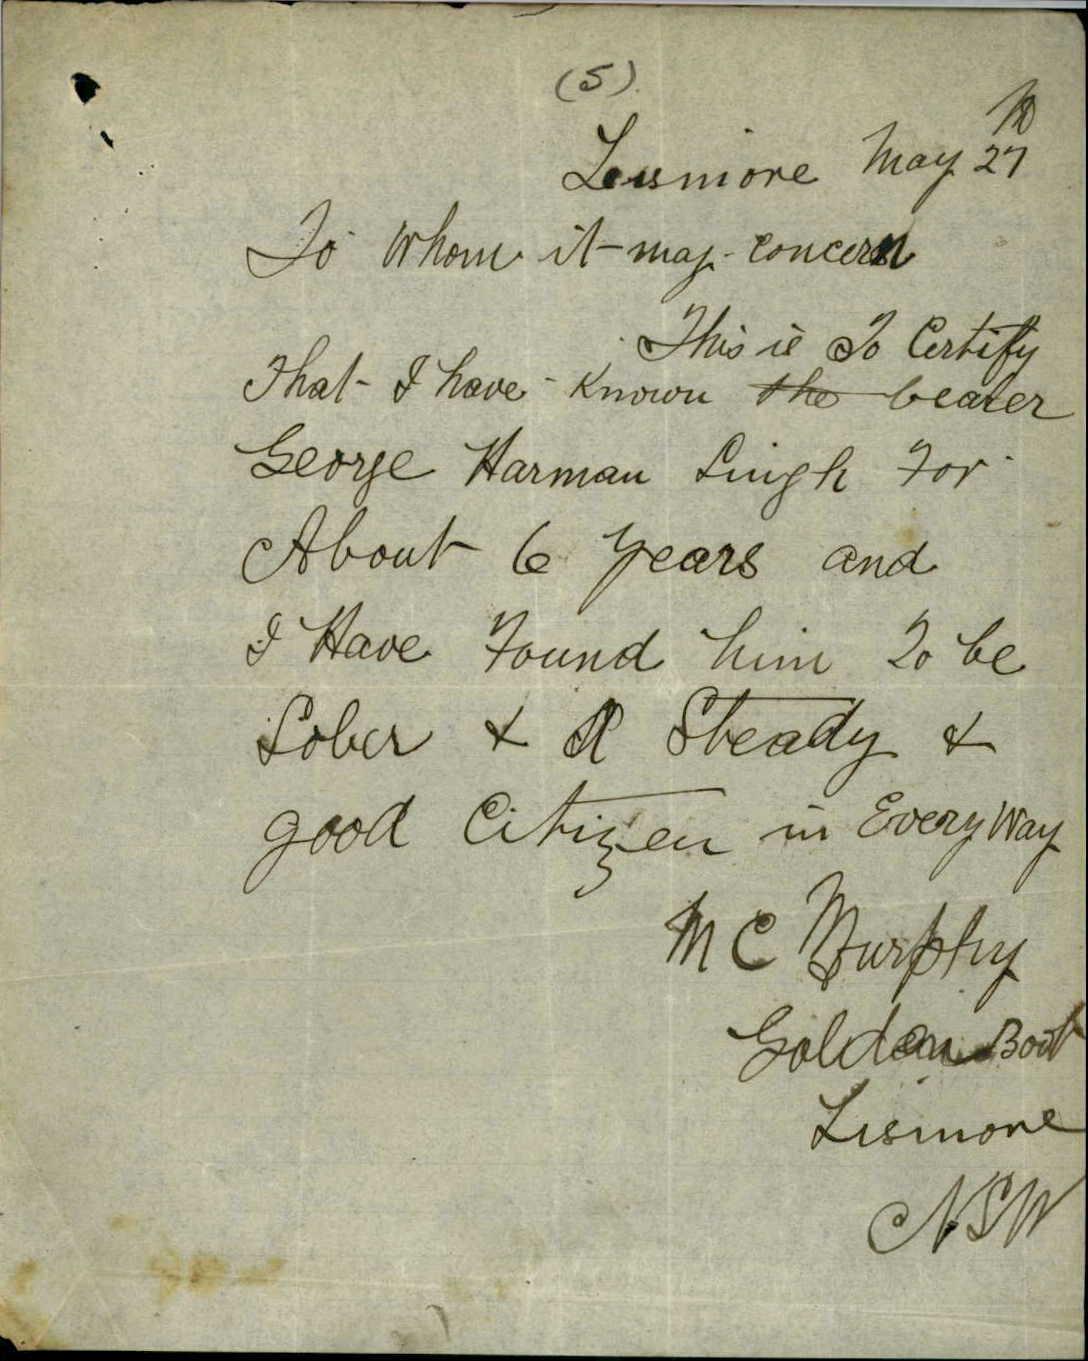 (5)
Lismore May 27
To Whom it may concern
This is To Certify
That I have Known the bearer
George Harman Singh For
About 6 Years and
I Have Found him To be
Sober & A Steady &
good Citizen in Every Way
M C Murphy
Golden Boot
Lismore
NSW